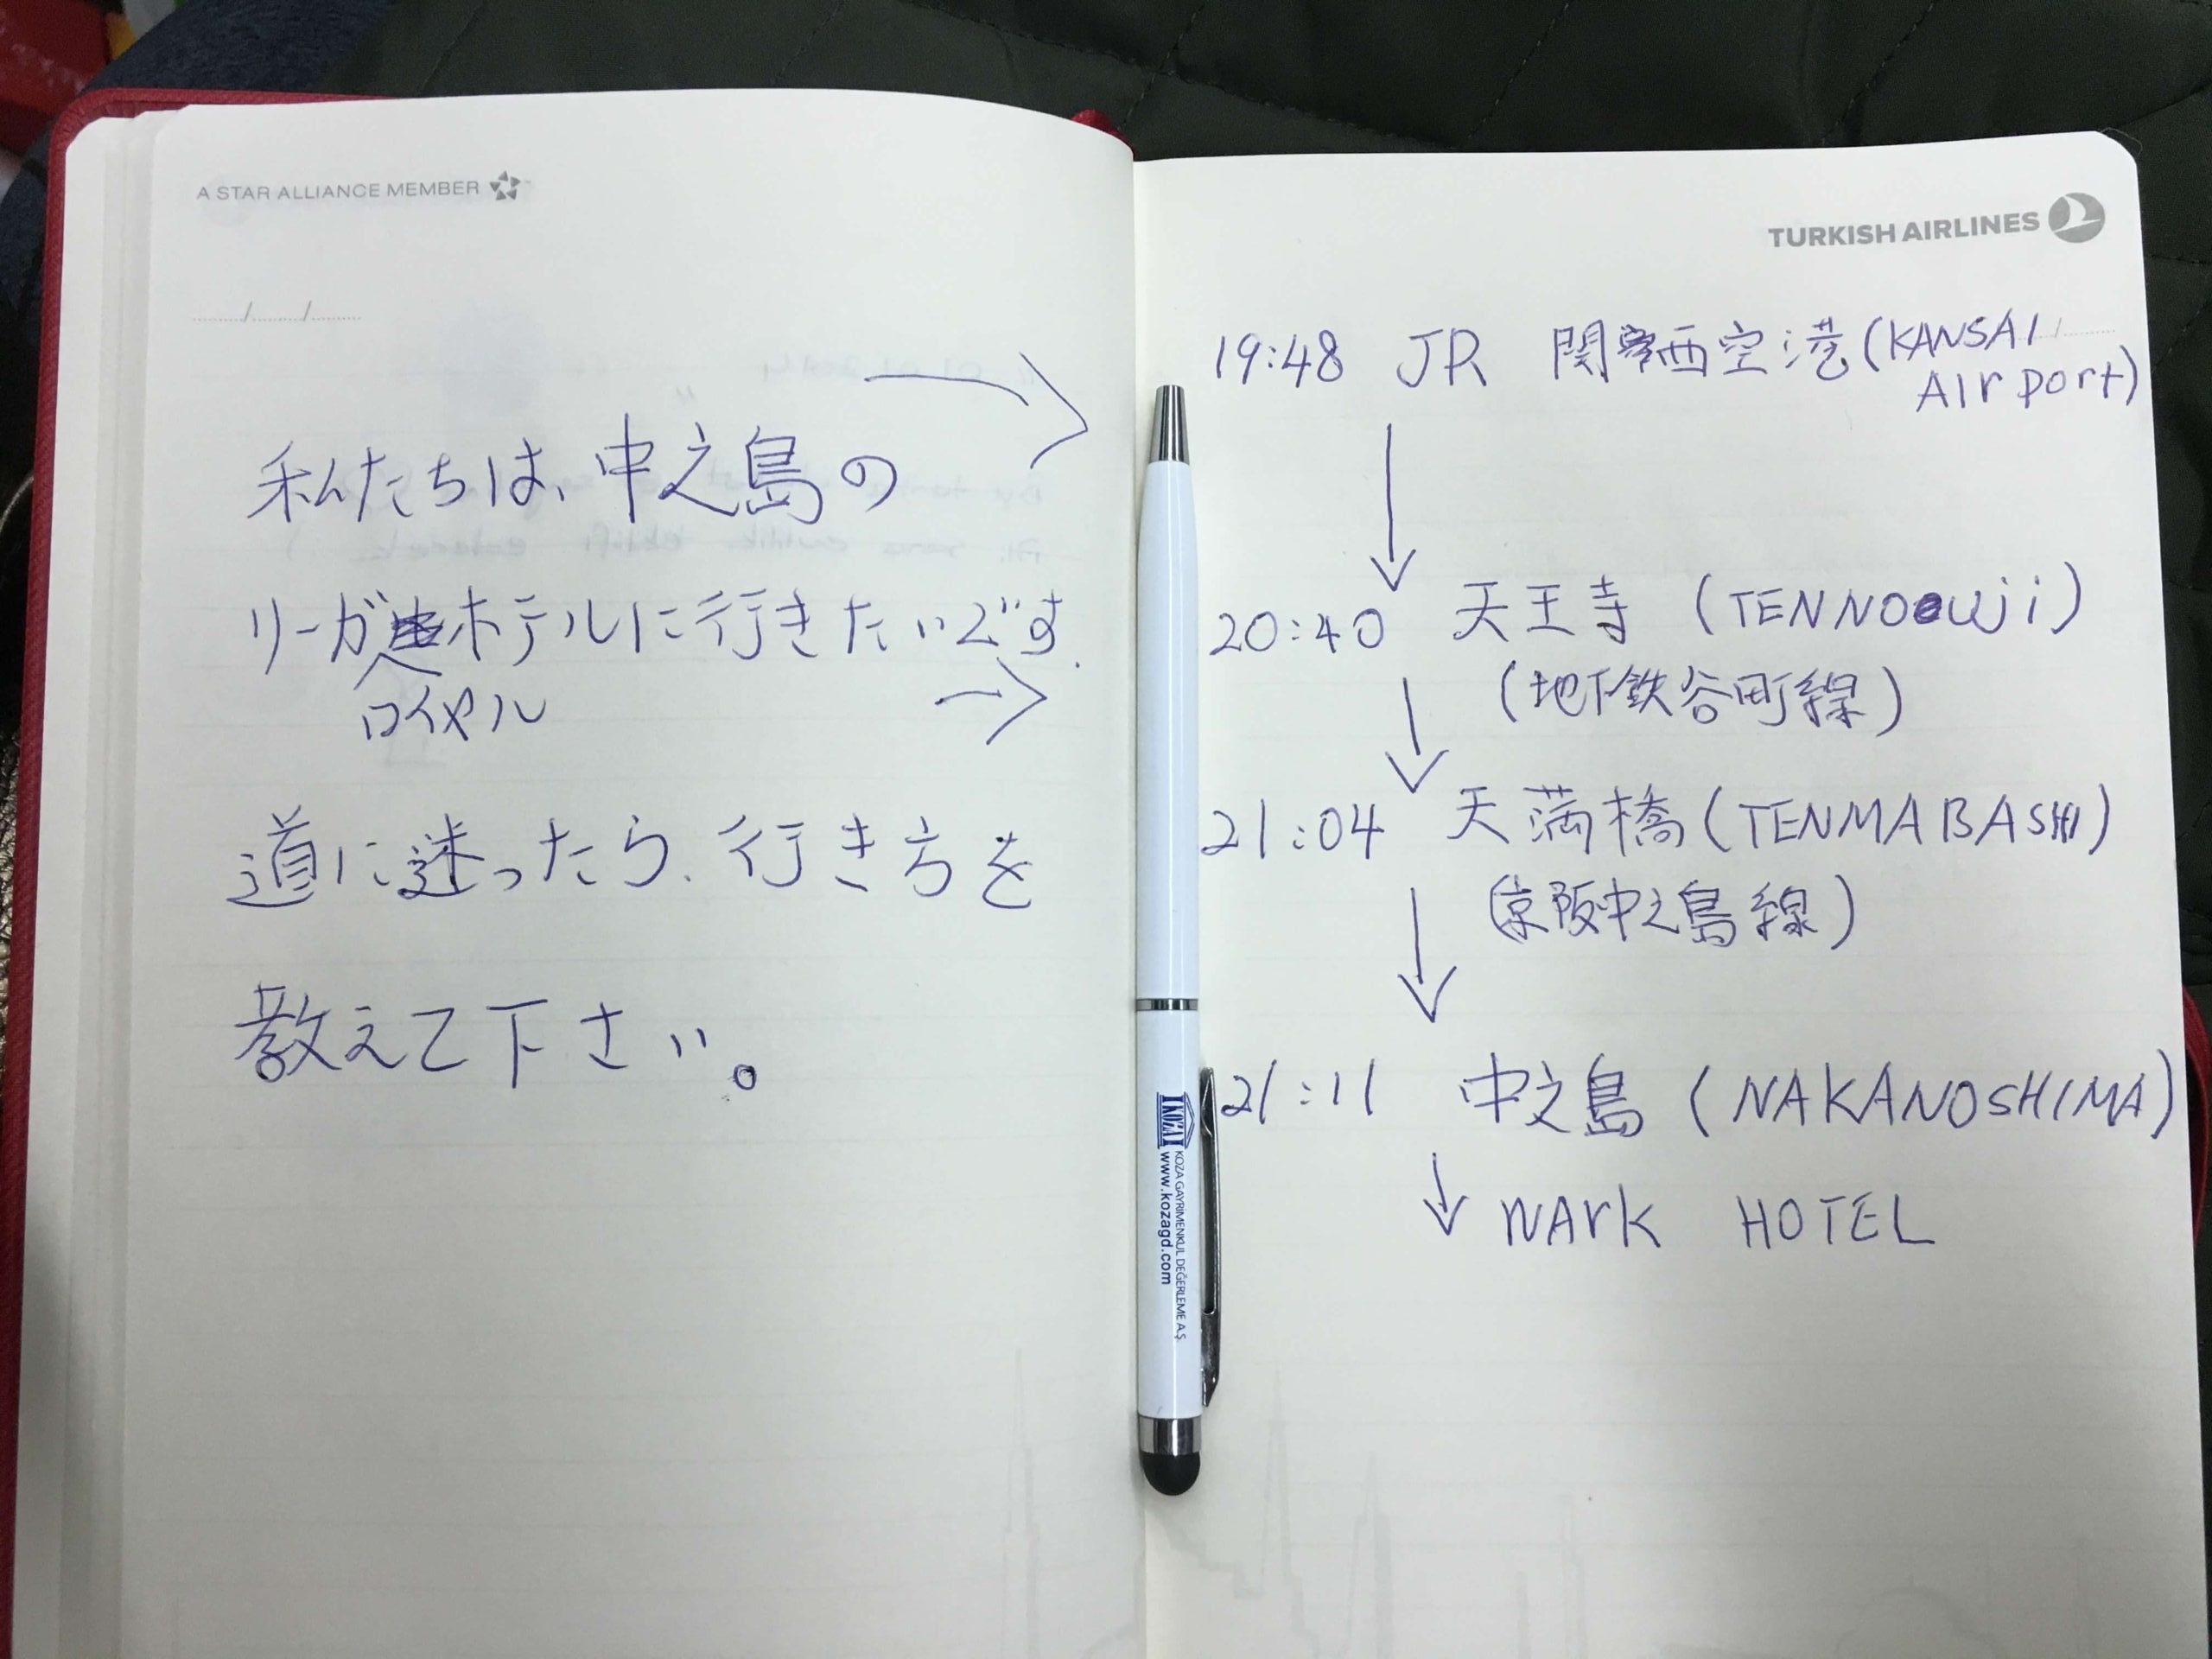 A STAR ALLIANCE MEMBER
私たちは、中之島の
リーガホテルに行きたいです.
ロイヤル
道に迷ったら、行き方を
教えて下さい。
TURKISH AIRLINES
19:48 JR 関西空港(KANSAI
AIrport)
20:40 天王寺 (TENNOuji)
(地下鉄谷町線)
21:04 天満橋(TENMABASHI)
(京阪中之島線)
21:11 中之島 (NAKANOSHIMA)
WArK HOTEL
KOZA
KOZA GAYRİMENKUL DEĞERLEME A.Ş.
www.kozagd.com